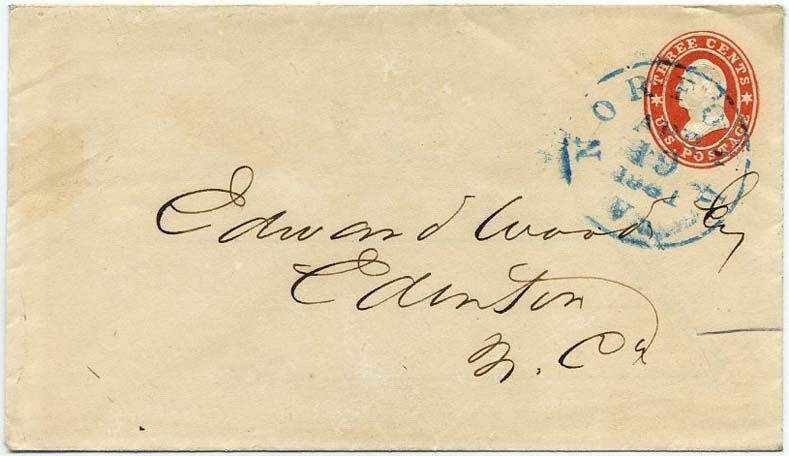 THREE CENTS
U.S. POSTAGE
NORFOLK VA
1861
Edward Wood Esq
Edenton
N. Ca